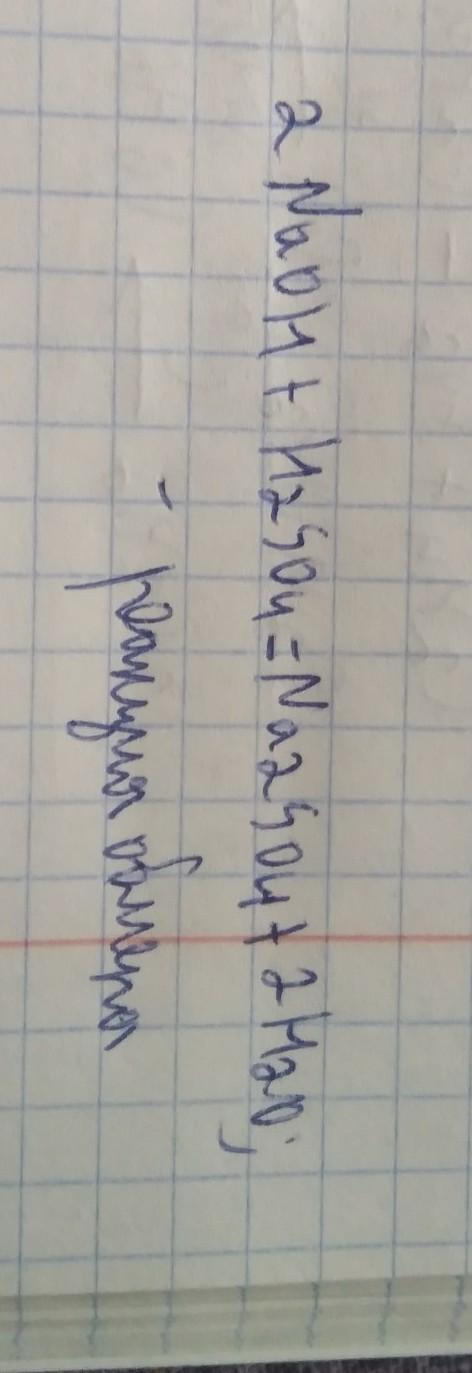 2NaOH + H2SO4 = Na2SO4 + 2H2O;
- реакция обмена